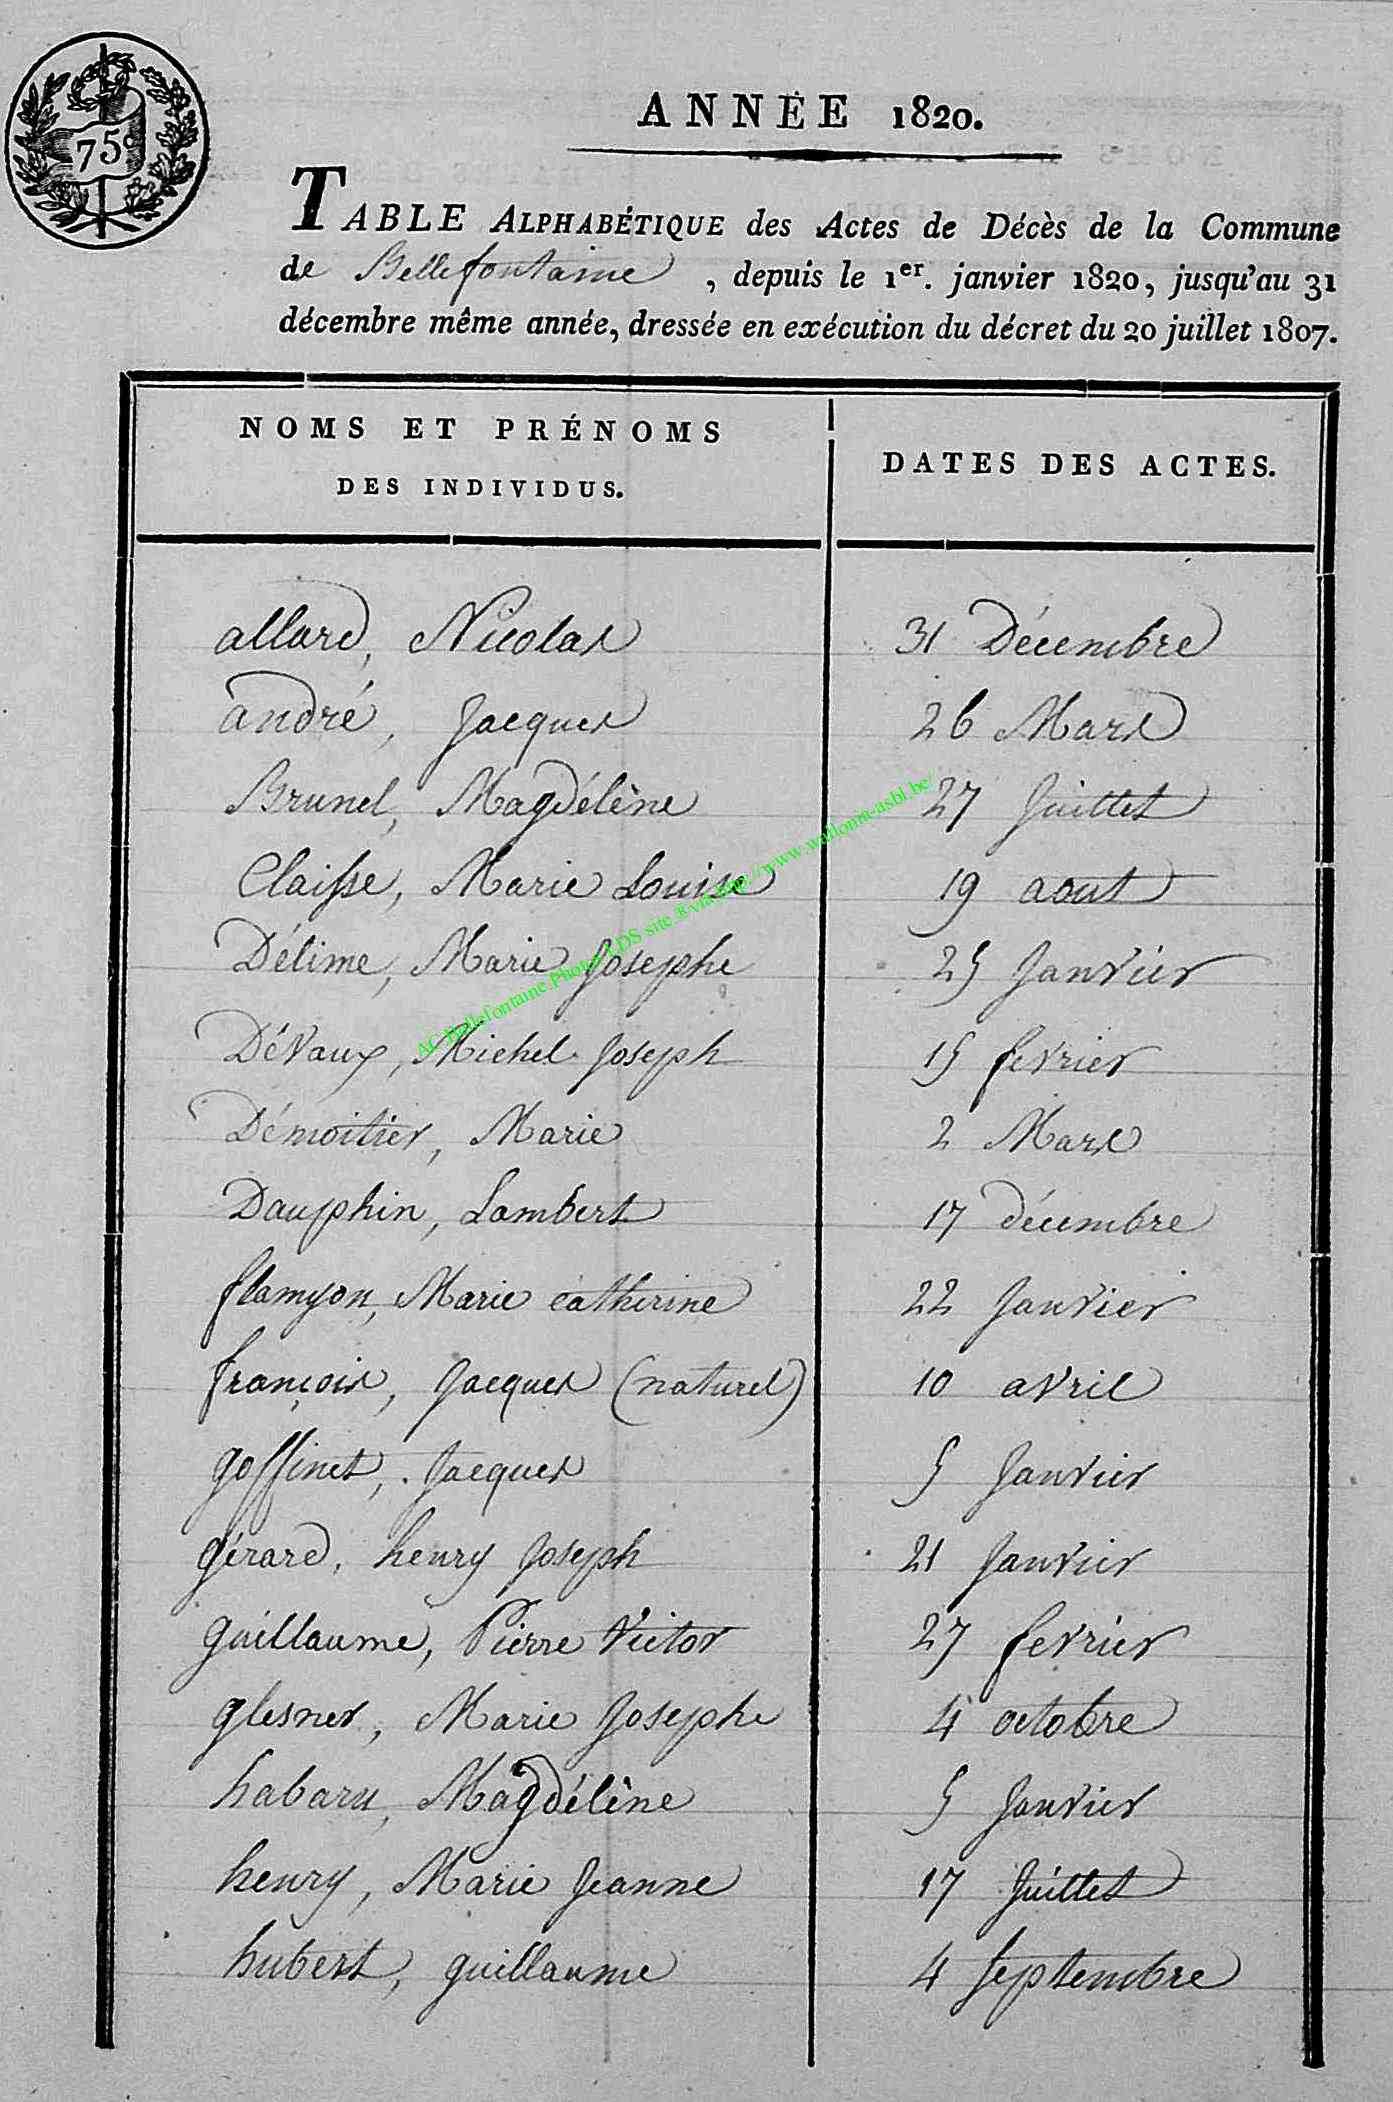 75c
ANNÉE 1820.
TABLE ALPHABÉTIQUE des Actes de Décès de la Commune
de Bellefontaine, depuis le 1er. janvier 1820, jusqu'au 31
décembre même année, dressée en exécution du décret du 20 juillet 1807.
NOMS ET PRÉNOMS
DES INDIVIDUS.
DATES DES ACTES.
allard, Nicolas 31 Décembre
andré, Jacques 26 Mars
Brunel, Magdélène 27 Juillet
Claisse, Marie Louise 19 aout
Délime, Marie Josephe 25 Janvier
Dévaux, Michel Joseph 15 fevrier
Démoitier, Marie 2 Mars
Dauphin, Lambert 17 décembre
flamyon, Marie catherine 22 Janvier
françois, Jacques (naturel) 10 avril
goffinet, Jacques 5 Janvier
gérard, henry Joseph 21 Janvier
guillaume, Pierre Victor 27 fevrier
glesner, Marie Josephe 4 octobre
habaru, Magdélène 5 Janvier
henry, Marie Jeanne 17 Juillet
hubert, guillaume 4 Septembre
AC Bellefontaine Photos LDS site & via http://www.wallonia-asbl.be/